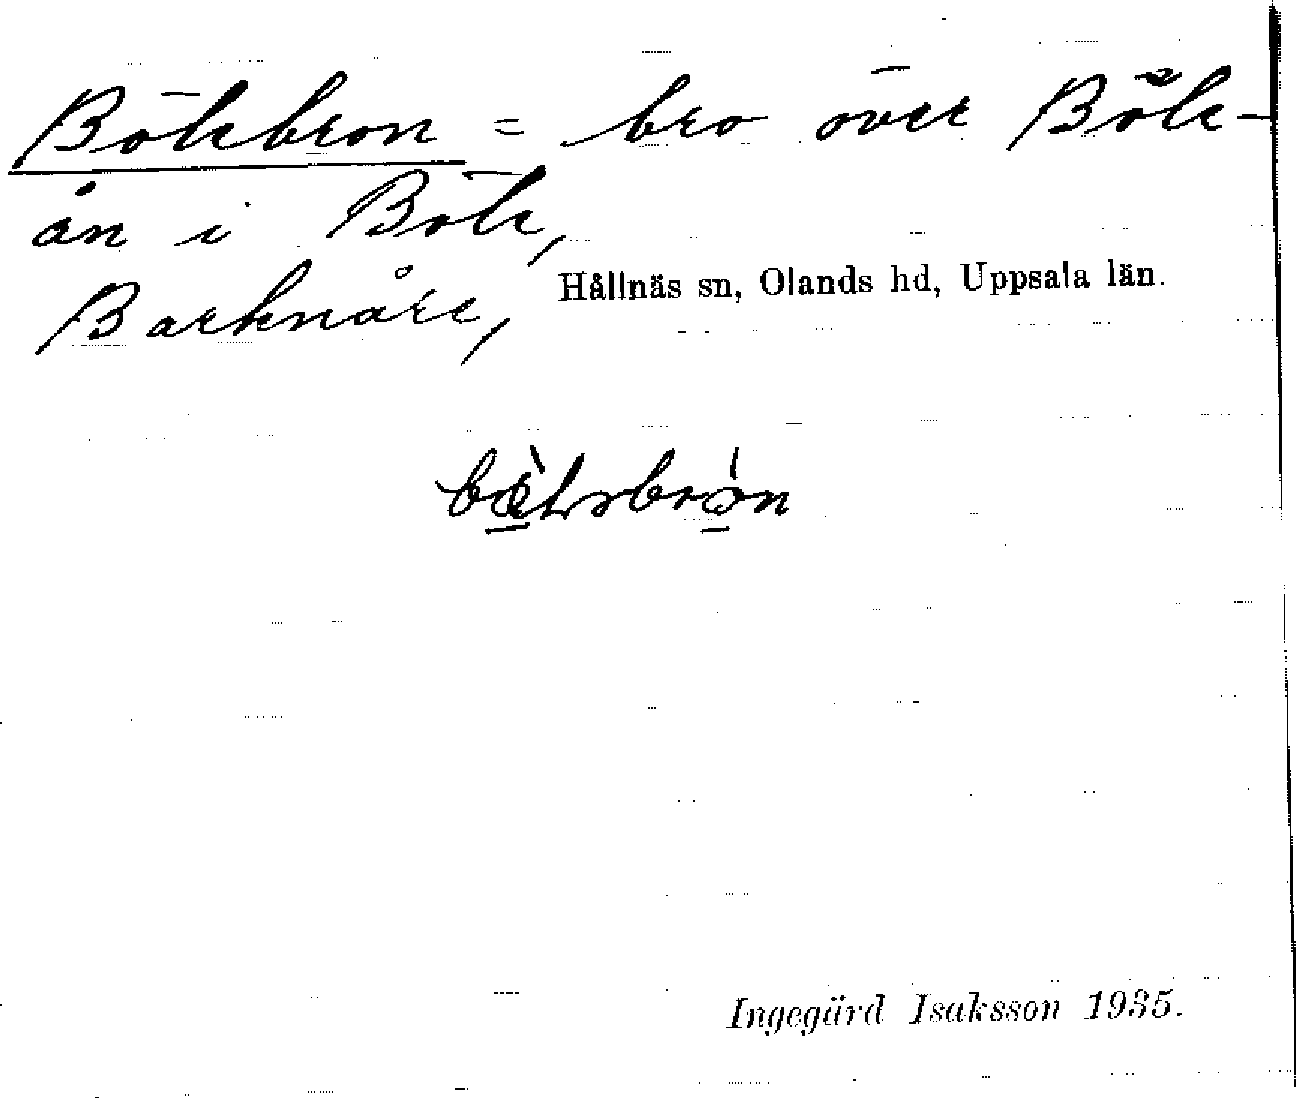 Bölebron = bro över Böle-
ån i Böle,
Barknåre, Hållnäs sn, Olands hd, Uppsala län.
Ingegärd Isaksson 1935.